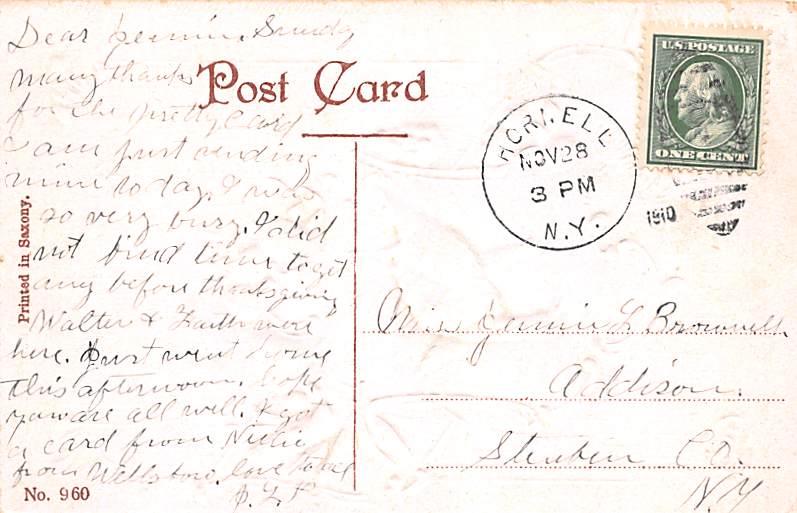 Dear Jennie. Sunday
many thanks
for the pretty card
I am just sending
mine to day. I was
so very busy. I did
not find time to get
any before thanksgiving
Walter & Faith were
here. Just went home
this afternoon. hope
you are all well. I got
a card from Nellie
from Wellsboro. love to all
Post Card
Printed in Saxony.
No. 960
U.S. POSTAGE
ONE CENT
HORNELL
NOV 28
3 PM
N.Y.
1910
Miss Jennie L Brownell
Addison.
Steuben Co.
N.Y